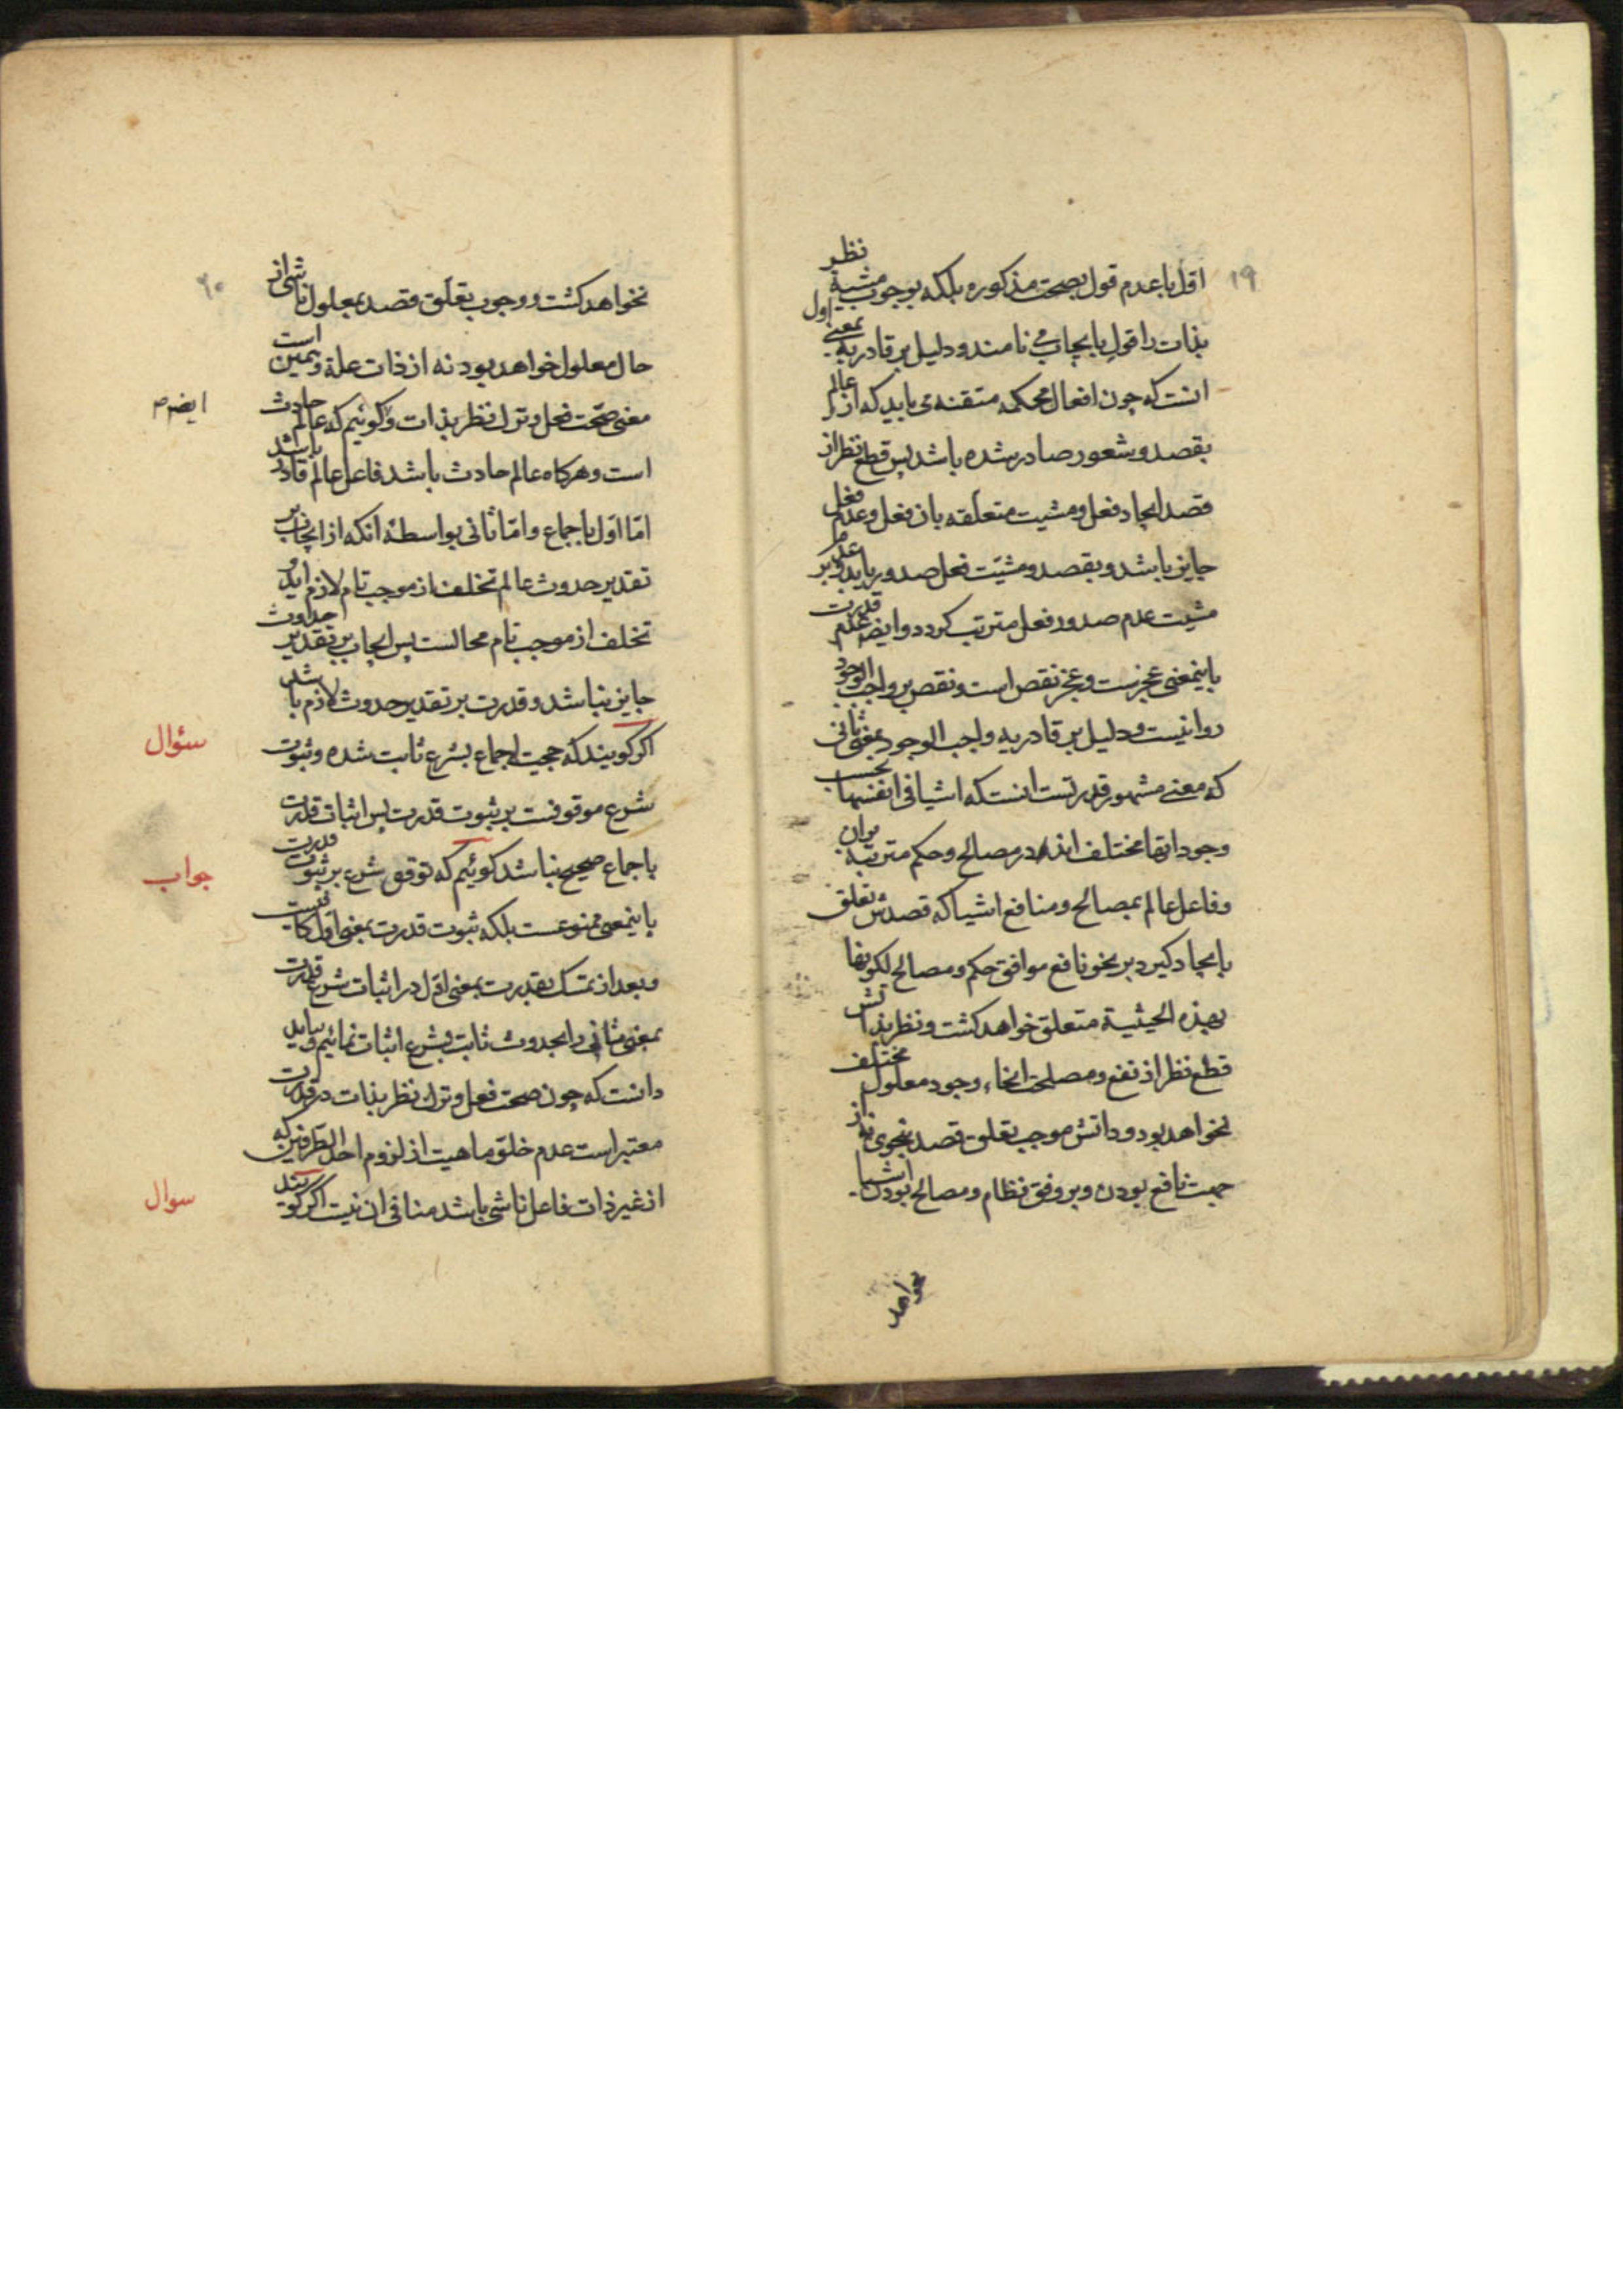 ۱۹
اول با عدم قول بصحت مذکوره بلکه بوجوب مشیة نظر
بذات را قول بایجاب می نامند و دلیل بر قادریه بمعنی اول
انست که چون افعال محکمه متقنه می باید که از عالم
بقصد و شعور صادر شده باشد پس قطع نظر از
قصد ایجاد فعل و مشیت متعلقه بان فعل و عدم فعل
جایز باشد و بقصد و مشیت فعل صدور یابد و بر عدم
مشیت عدم صدور فعل مترتب کردد و ایضا عدم قدرت
باینمعنی عجزست و عجز نقص است و نقص بر واجب الوجود
روا نیست و دلیل بر قادریه واجب الوجود بمعنی ثانی
که معنی مشهور قدرتست انست که اشیا فی انفسها بحسب
وجوداتها مختلف اند در مصالح و حکم مترتبه بران
و فاعل عالم بمصالح و منافع اشیا که قصدش تعلق
بایجاد کیرد بر نحو نافع موافق حکم و مصالح لکونها
بهذه الحیثیة متعلق خواهد کشت و نظر بذاتش
قطع نظر از نفع و مصلحت انحاء وجود معلول مختلف
نخواهد بود و ذاتش موجب تعلق قصد بنحوی نه از
جهت نافع بودن و بر وفق نظام و مصالح بودن اشیا
نخواهد
۲۰
نخواهد کشت و وجوب تعلق قصد بمعلول ناشی از
حال معلول خواهد بود نه از ذات علة و همین است
معنی صحت فعل و ترک نظر بذات و کوئیم که عالم حادث
ایضا م
است و هرکاه عالم حادث باشد فاعل عالم قادر باشد
اما اول باجماع و اما ثانی بواسطهٔ انکه از ایجاب بر
تقدیر حدوث عالم تخلف از موجب تام لازم اید و
تخلف از موجب تام محالست پس ایجاب بر تقدیر حدوث
جایز نباشد و قدرت بر تقدیر حدوث لازم باشد
سئوال
اکر کویند که حجیت اجماع بشرع ثابت شده و ثبوت
شرع موقوفست بر ثبوت قدرت پس اثبات قدرت
باجماع صحیح نباشد کوئیم که توقف شرع بر ثبوت قدرت
جواب
باینمعنی ممنوعست بلکه ثبوت قدرت بمعنی اول کافیست
و بعد از تمسک بقدرت بمعنی اول در اثبات شرع قدرت
بمعنی ثانی را بحدوث ثابت بشرع اثبات نمائیم و باید
دانست که چون صحت فعل و ترک نظر بذات در قدرت
معتبر است عدم خلو ماهیت از لزوم احد الطرفین که
از غیر ذات فاعل ناشی باشد منافی ان نیست اکر کویند
سوال